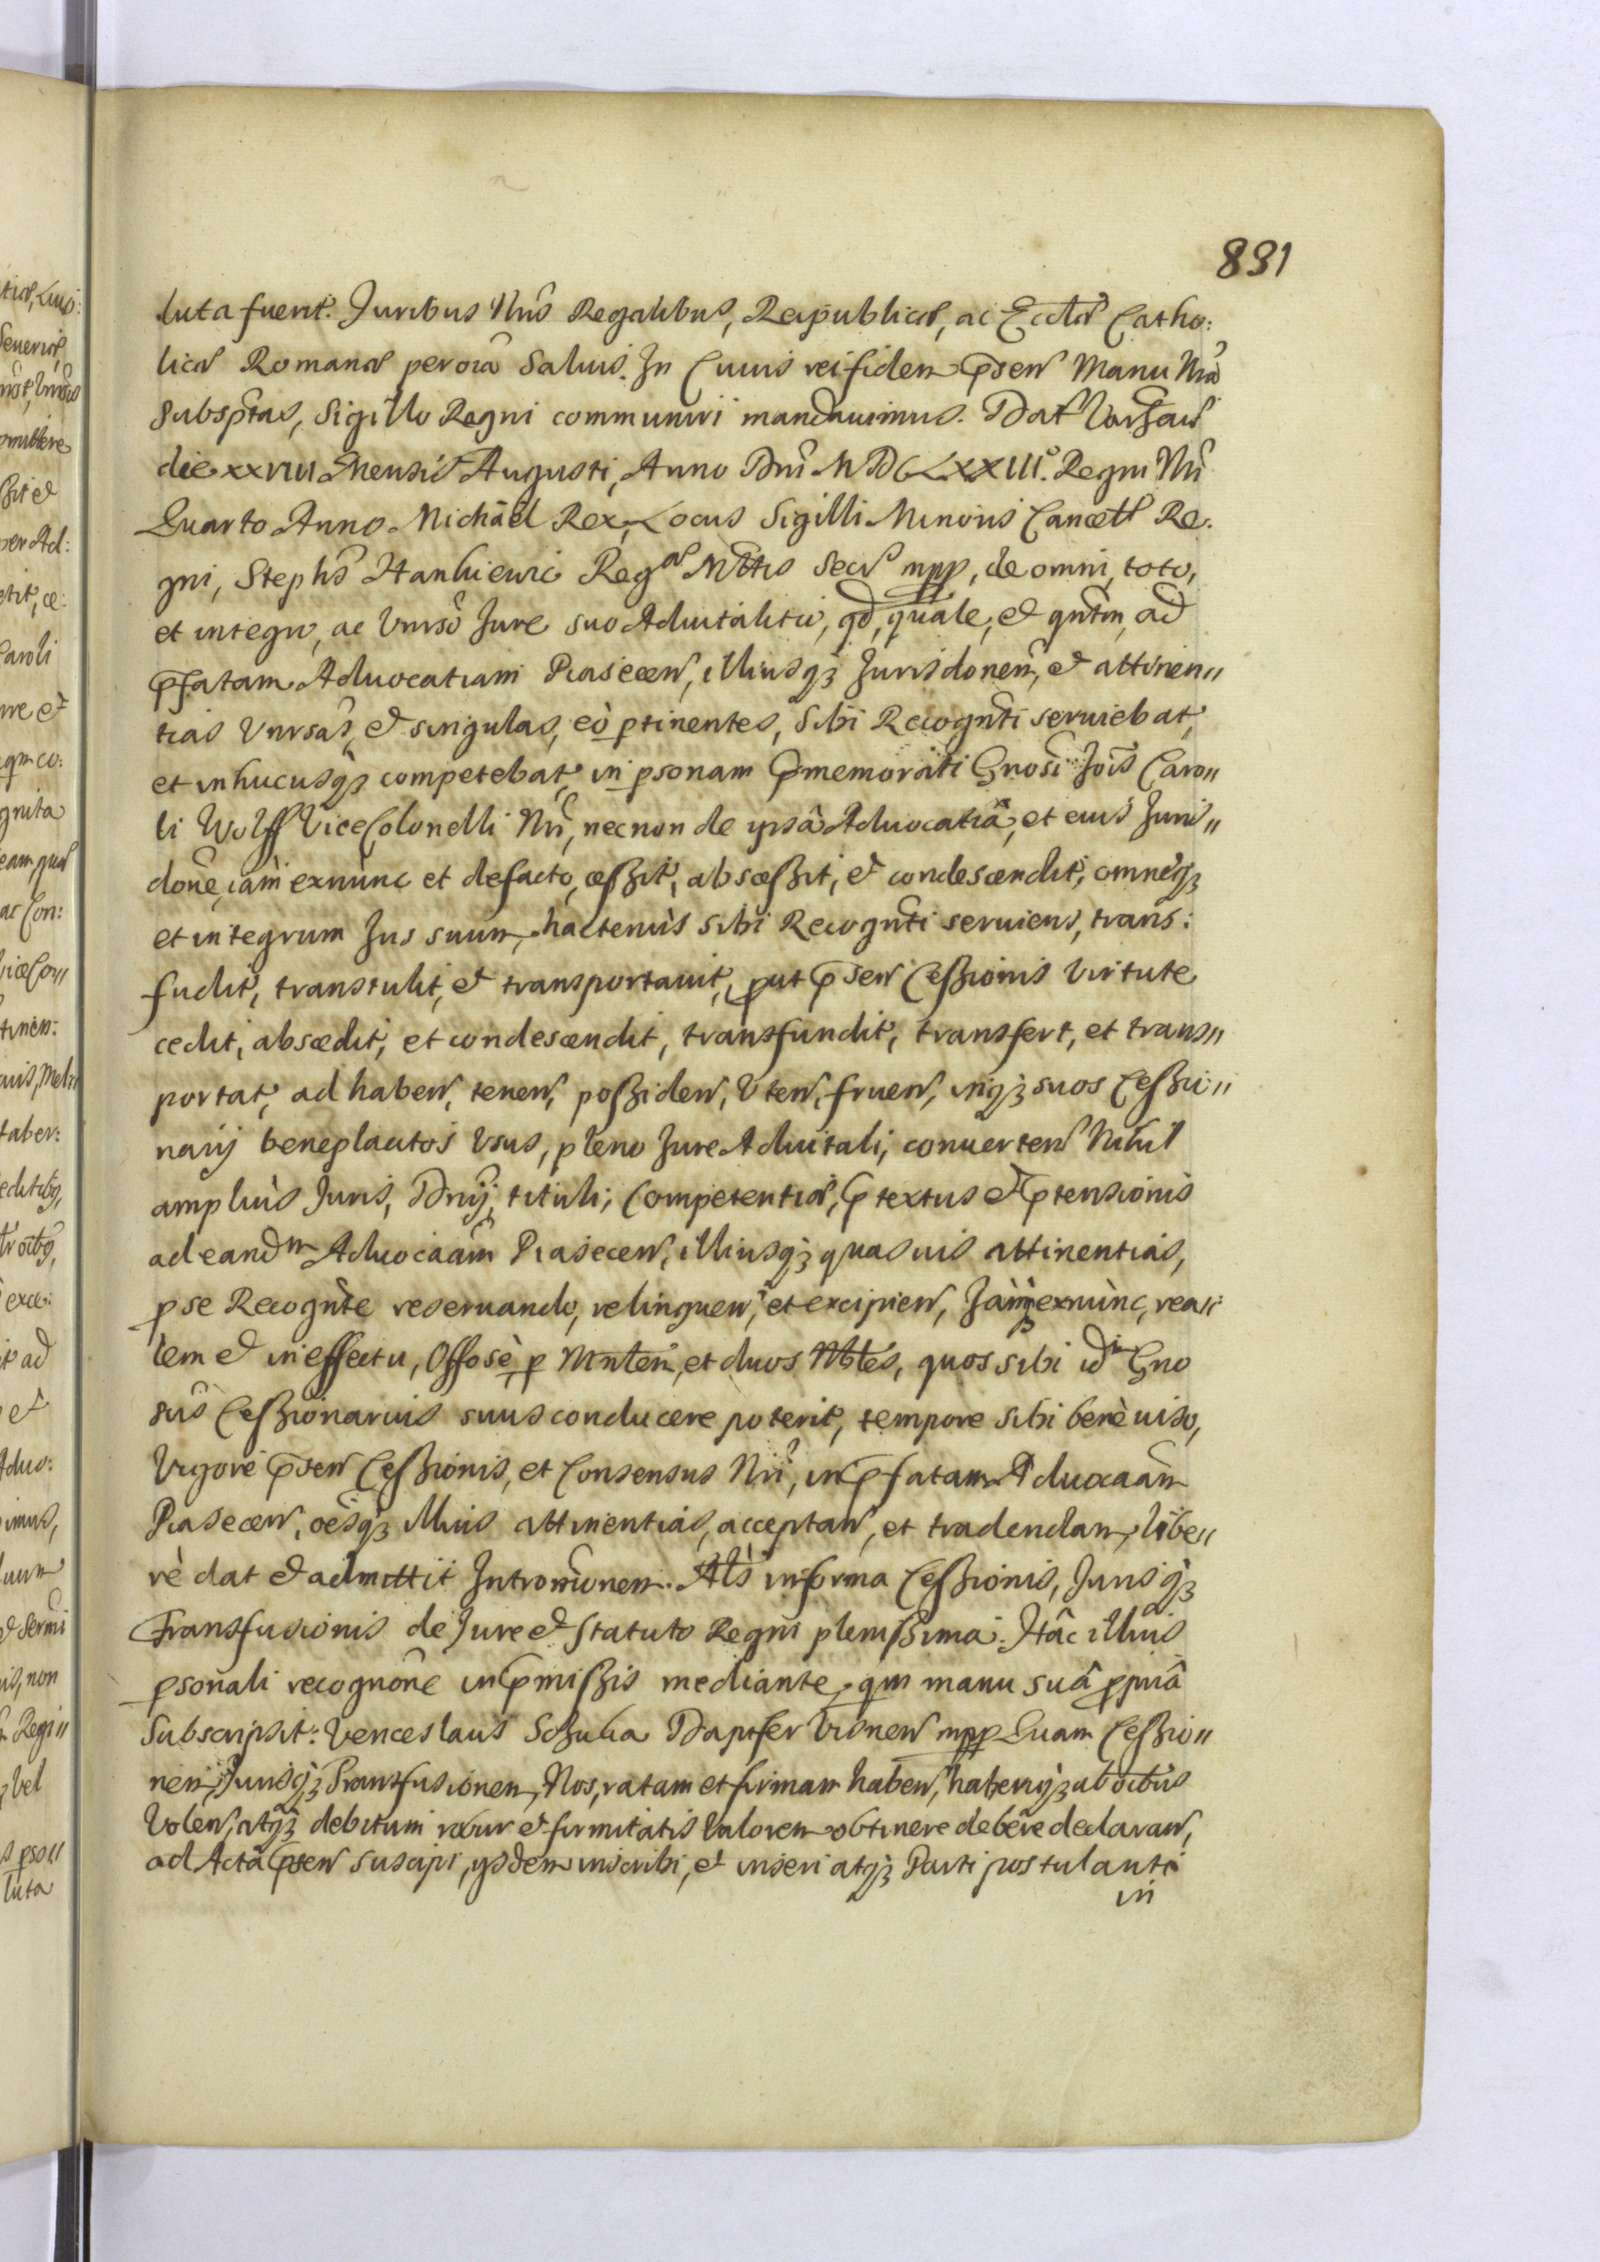 831
luta fuerit. Juribus Nris Regalibus, Reipublicæ, ac Eccliæ Catho:
licæ Romanæ per oīa Saluis. In Cuius rei fidem p̄sen Manu Nrâ
Subsptas, Sigillo Regni communiri mandauimus. Dat Varsauiæ
die XXVIII Mensis Augusti, Anno Dni MDCLXXIII.° Regni Nri
Quarto Anno. Michaël Rex, Locus Sigilli Minoris Cancell Re:
gni, Stephs Hankiewic Regæ Mttis Secr mpp, de omni, toto,
et integro, ac Vnirso Jure suo Aduitalitio, qd, quale, et qntm, ad
p̄fatam Aduocatiam Piasecen, illiusqȝ Jurisdonem, et attinen„
tias Vnrsas, et singulas, eò ptinentes, Sibi Recognti seruiebat,
et in hucusqȝ competebat, in psonam p̄memorati Gnosi Jois Caro„
li Wolff Vice Colonelli Nri, necnon de ipsâ Aduocatiâ, et eius Juris„
done, iàm exnùnc et defacto, cessit, abscessit, et condescendit, omneqȝ
et integrum Jus suum, hactenùs Sibi Recognti seruiens, trans:
fudit, transtulit, et transportauit, put p̄sen Cessionis Virtute
cedit, abscedit, et condescendit, transfundit, transfert, et trans„
portat, ad haben, tenen, possiden, Vten, fruen, inqȝ suos Cessio„
narij beneplacitos Vsus, pleno Jure Aduitali, conuerten Nihil
ampliùs Juris, Dnij, tituli, Competentiæ, p̄textus et p̄tensionis
ad eandm Aduocaām Piasecen, illiusqȝ quasuis attinentias,
p se Recognte reseruando, relinquen, et excipien, Jàm exnùnc, rea„
lem et in effectu, Offosè, p Mnlem, et duos Nbles, quos sibi idm Gno
sus Cessionarius suus conducere poterit, tempore Sibi benè uiso,
Vigore p̄sen Cessionis, et Consensus Nri, in p̄fatam Aduocaām
Piasecen, oēsqȝ illius attinentias, acceptan, et tradendam, libe„
rè dat et admittit Intromionem. Als in forma Cessionis, Jurisqȝ
Transfusionis de Jure et Statuto Regni plenissima. Hâc illius
psonali recognone in p̄missis mediante, qm manu suâ ppriâ
Subscripsit: Venceslaus Schulia Dapifer Visnen mpp Quam Cessio„
nem, Jurisqȝ Transfusionem, Nos, ratam et firmam haben, haberiqȝ ab oībus
Volen, atqȝ debitum robur et firmitatis Valorem obtinere debere declaran,
ad Acta p̄sen suscipi, ysdem inscribi, et inseri atqȝ Parti postulanti
in